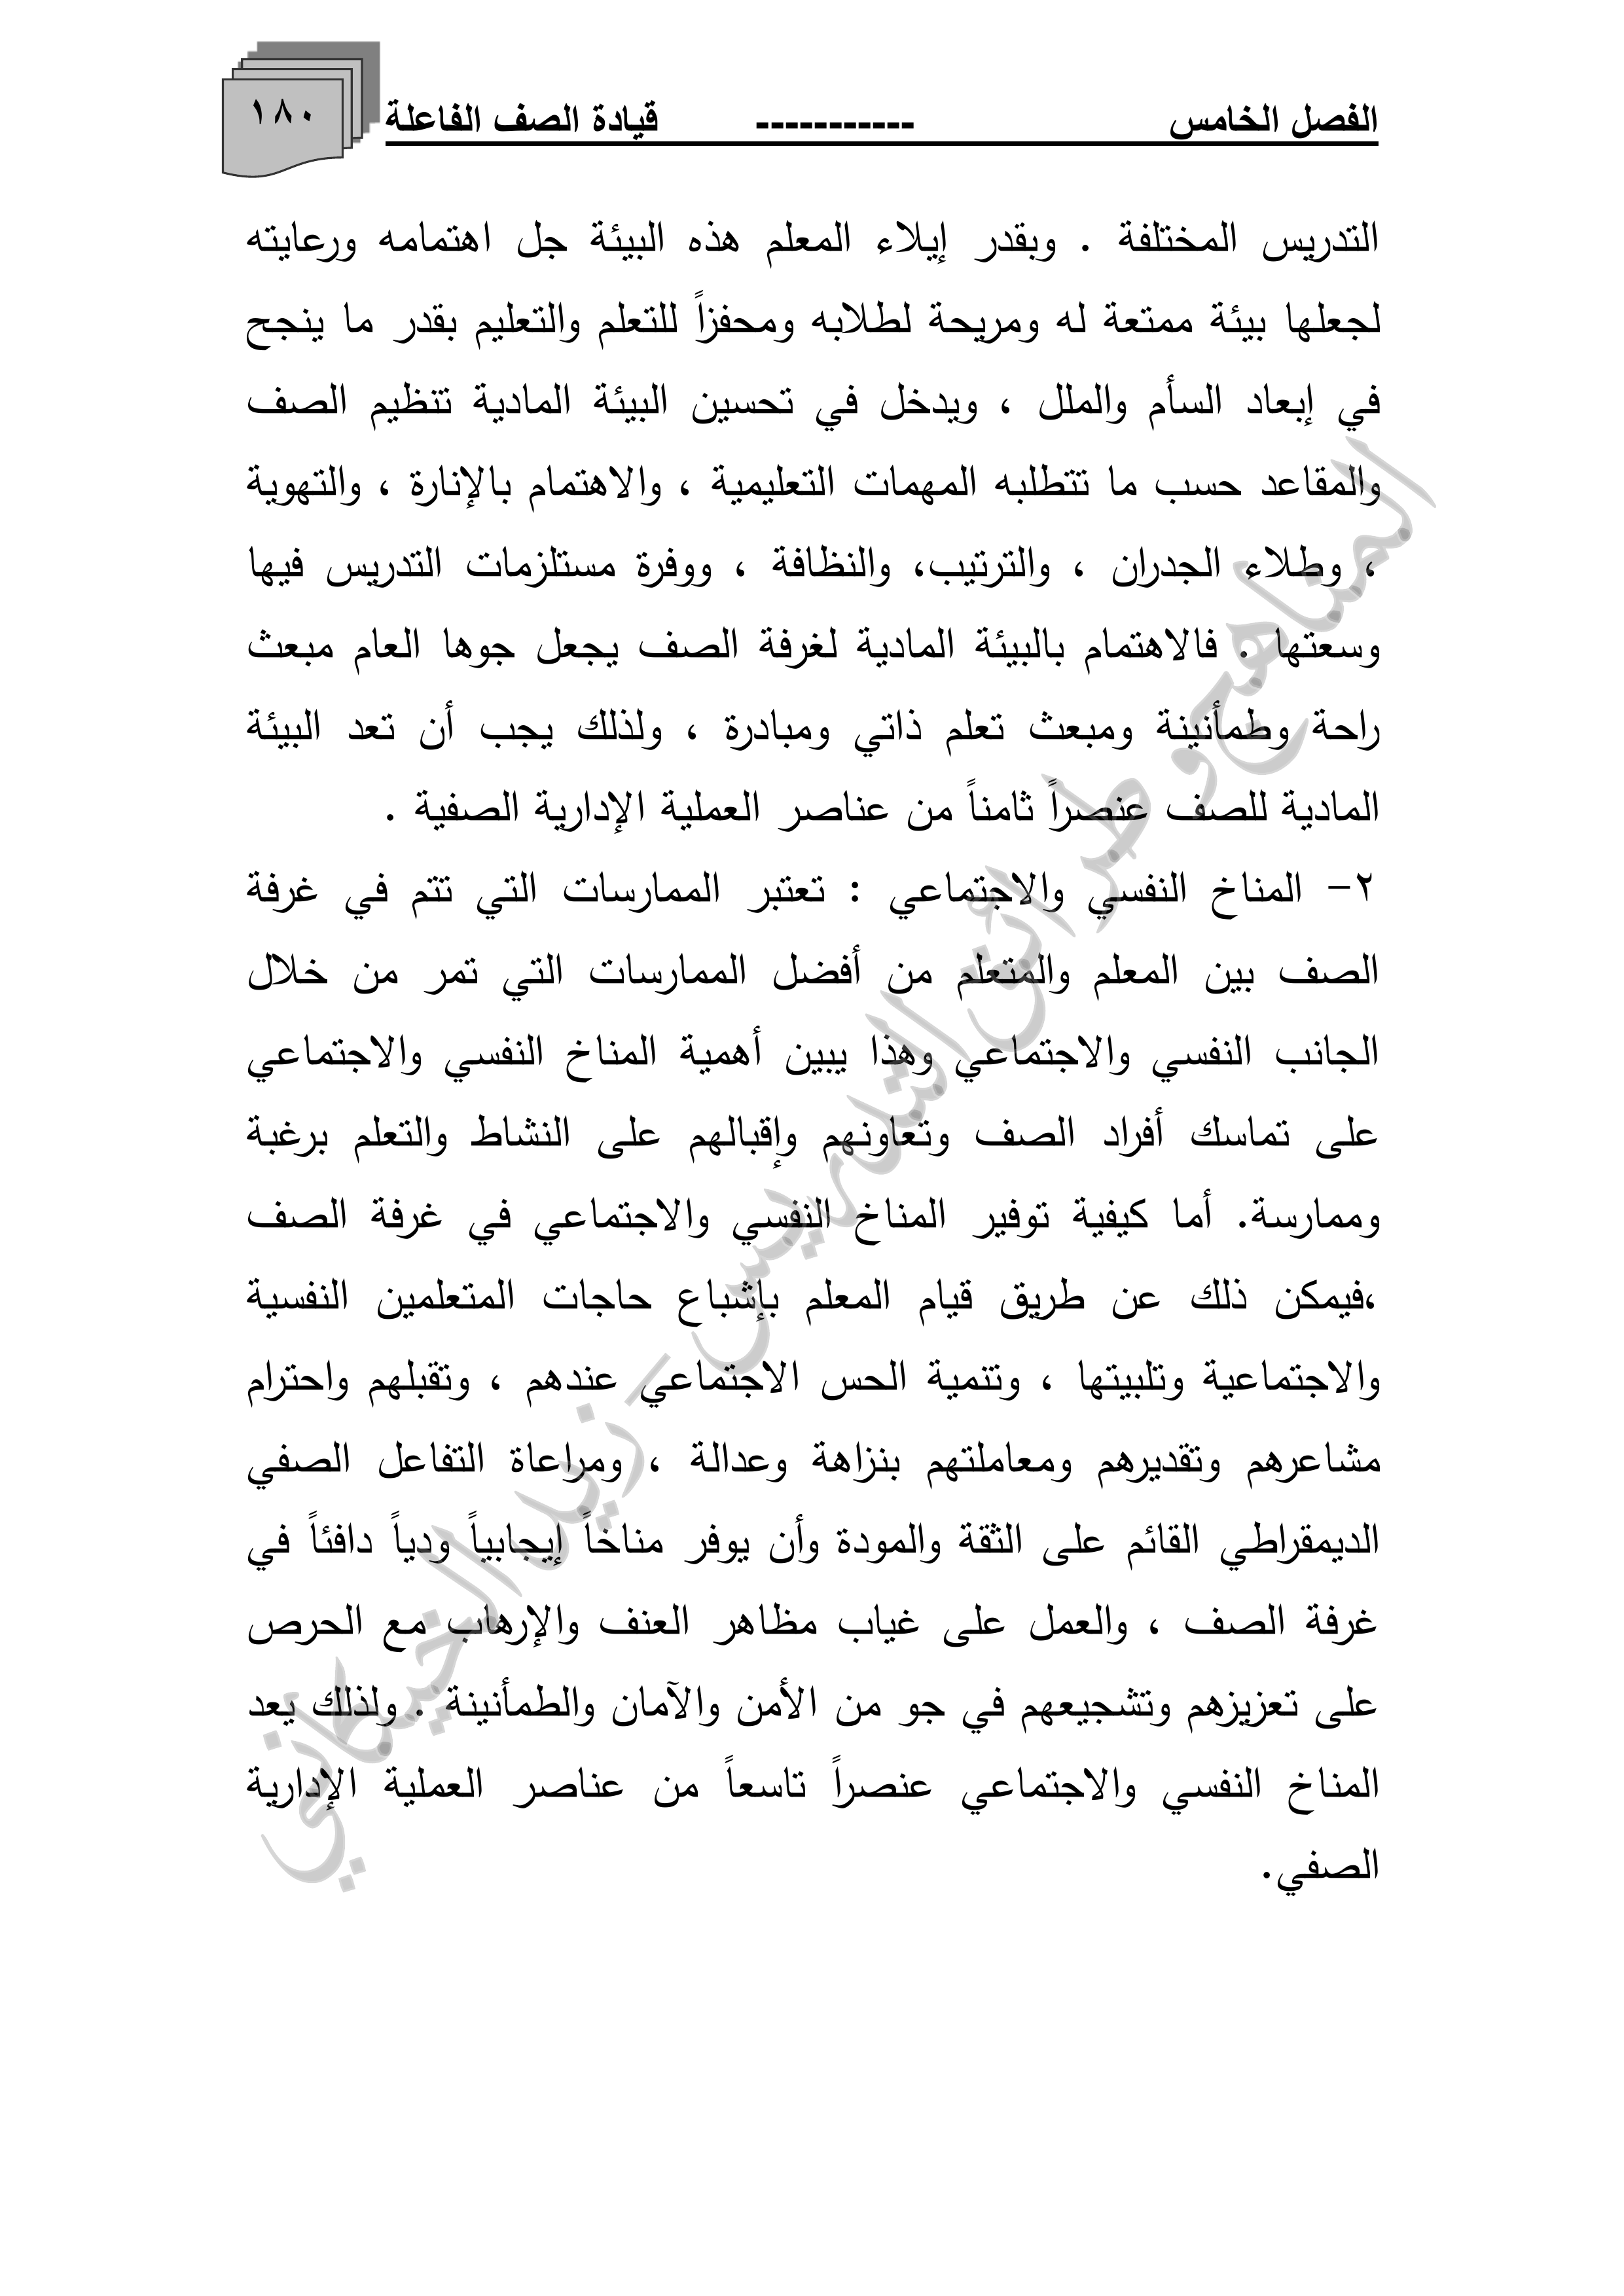 الفصل الخامس ----------- قيادة الصف الفاعلة
١٨٠
التدريس المختلفة . وبقدر إيلاء المعلم هذه البيئة جل اهتمامه ورعايته
لجعلها بيئة ممتعة له ومريحة لطلابه ومحفزاً للتعلم والتعليم بقدر ما ينجح
في إبعاد السأم والملل ، ويدخل في تحسين البيئة المادية تنظيم الصف
والمقاعد حسب ما تتطلبه المهمات التعليمية ، والاهتمام بالإنارة ، والتهوية
، وطلاء الجدران ، والترتيب، والنظافة ، ووفرة مستلزمات التدريس فيها
وسعتها . فالاهتمام بالبيئة المادية لغرفة الصف يجعل جوها العام مبعث
راحة وطمأنينة ومبعث تعلم ذاتي ومبادرة ، ولذلك يجب أن تعد البيئة
المادية للصف عنصراً ثامناً من عناصر العملية الإدارية الصفية .
٢- المناخ النفسي والاجتماعي : تعتبر الممارسات التي تتم في غرفة
الصف بين المعلم والمتعلم من أفضل الممارسات التي تمر من خلال
الجانب النفسي والاجتماعي وهذا يبين أهمية المناخ النفسي والاجتماعي
على تماسك أفراد الصف وتعاونهم وإقبالهم على النشاط والتعلم برغبة
وممارسة. أما كيفية توفير المناخ النفسي والاجتماعي في غرفة الصف
،فيمكن ذلك عن طريق قيام المعلم بإشباع حاجات المتعلمين النفسية
والاجتماعية وتلبيتها ، وتنمية الحس الاجتماعي عندهم ، وتقبلهم واحترام
مشاعرهم وتقديرهم ومعاملتهم بنزاهة وعدالة ، ومراعاة التفاعل الصفي
الديمقراطي القائم على الثقة والمودة وأن يوفر مناخاً إيجابياً ودياً دافئاً في
غرفة الصف ، والعمل على غياب مظاهر العنف والإرهاب مع الحرص
على تعزيزهم وتشجيعهم في جو من الأمن والآمان والطمأنينة . ولذلك يعد
المناخ النفسي والاجتماعي عنصراً تاسعاً من عناصر العملية الإدارية
الصفي.
المناهج وطرائق التدريس - زيد الخيكاني